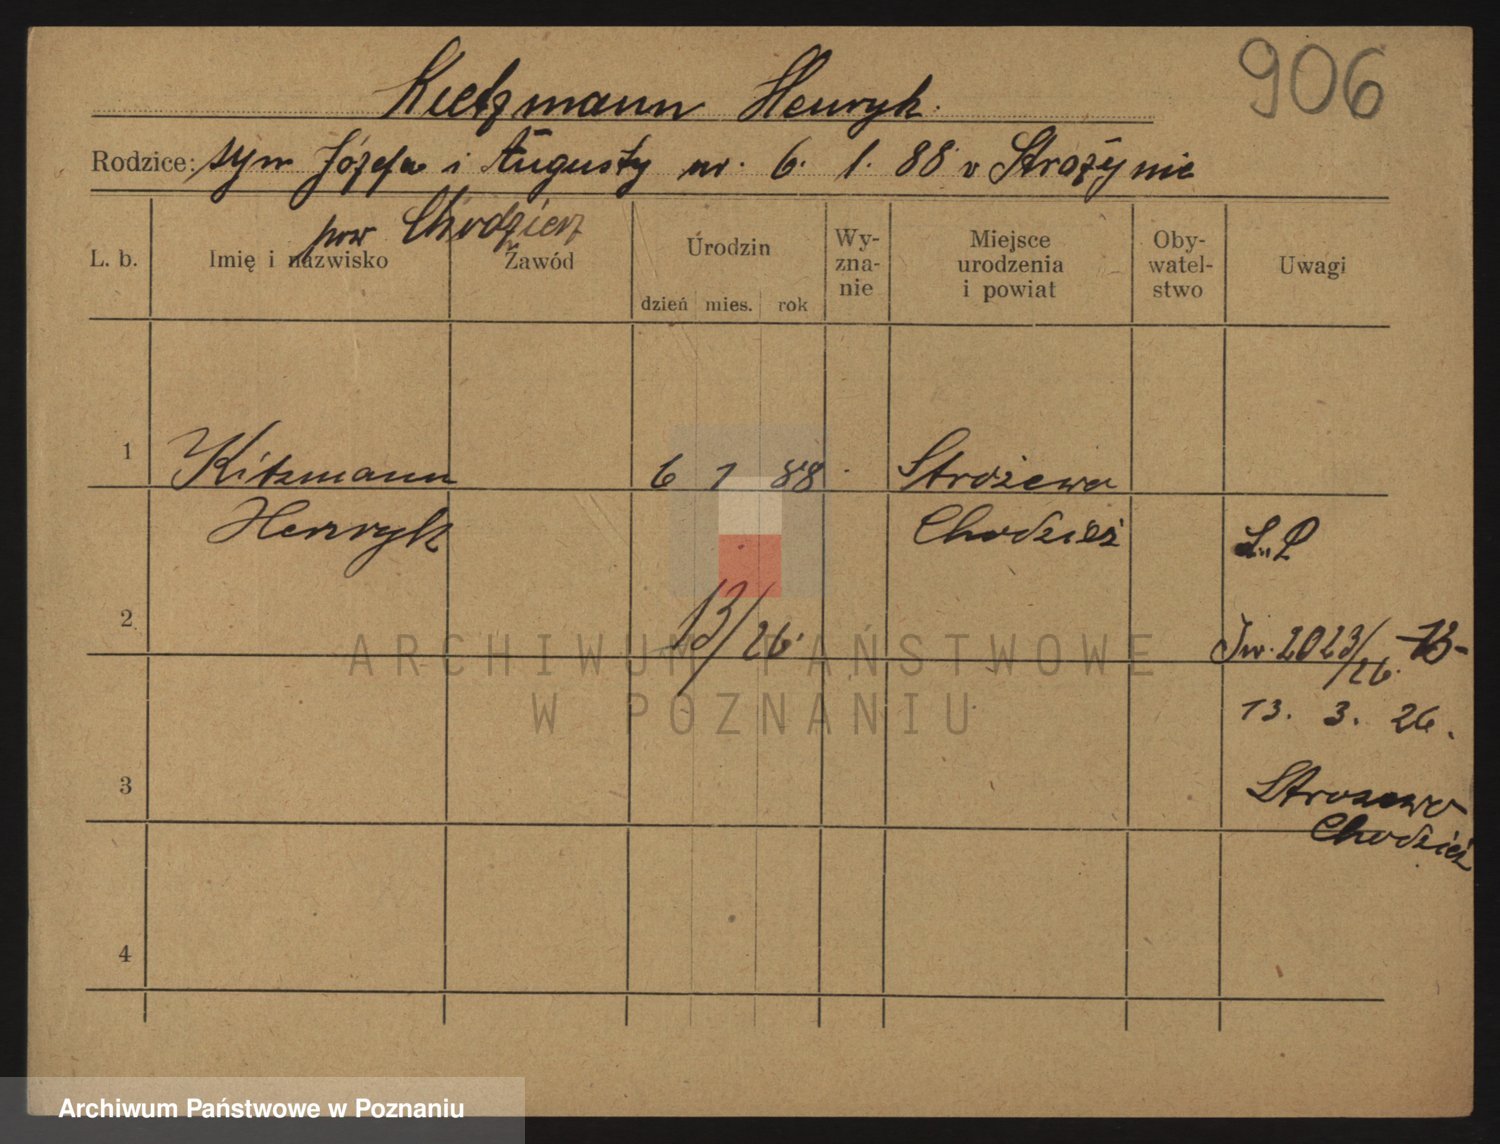 906
Kietzmann Henryk.
Rodzice: syn Józefa i Augusty ur. 6. 1. 88 w Strożynie
pow Chodzież
L. b. Imię i nazwisko Zawód Urodzin Wy-zna-nie Miejsce urodzenia i powiat Oby-watel-stwo Uwagi
dzień mies. rok
1 Kitzmann 6 1 88 Strożewo
Henryk Chodzież L. P
2 13/26 Jw. 2023/26. 13-
13. 3. 26.
3 Strozewo
Chodzież
4
ARCHIWUM PAŃSTWOWE
W POZNANIU
Archiwum Państwowe w Poznaniu